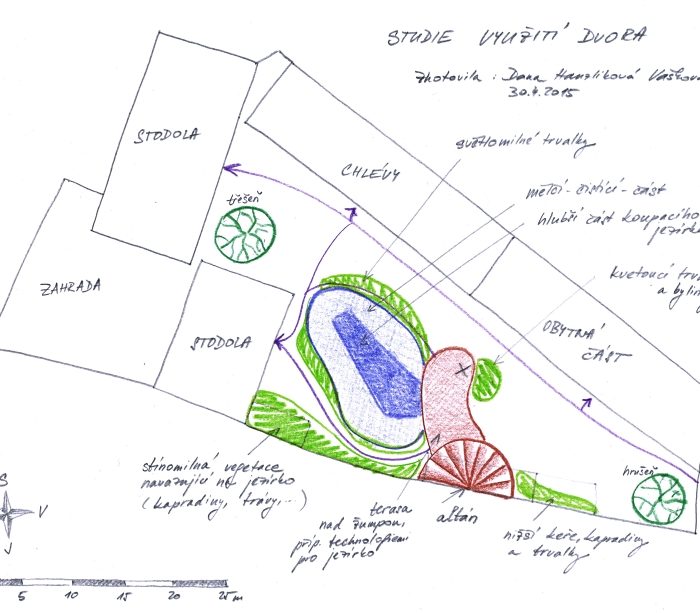 STUDIE VYUŽITÍ DVORA
Zhotovila : Dana Hanzlíková Vašková
30.4.2015
světlomilné trvalky
STODOLA
CHLÉVY
mělčí - čistící - část
hlubší část koupacího
jezírka
třešeň
kvetoucí
a
ZAHRADA
STODOLA
OBYTNÁ
ČÁST
stínomilná vegetace
navazující na jezírko
(kapradiny, trávy,..)
hrušeň
terasa
nad žumpou,
příp. technologiemi
pro jezírko
altán
nižší keře, kapradiny
a trvalky
S
V
J
5 10 15 20 25m